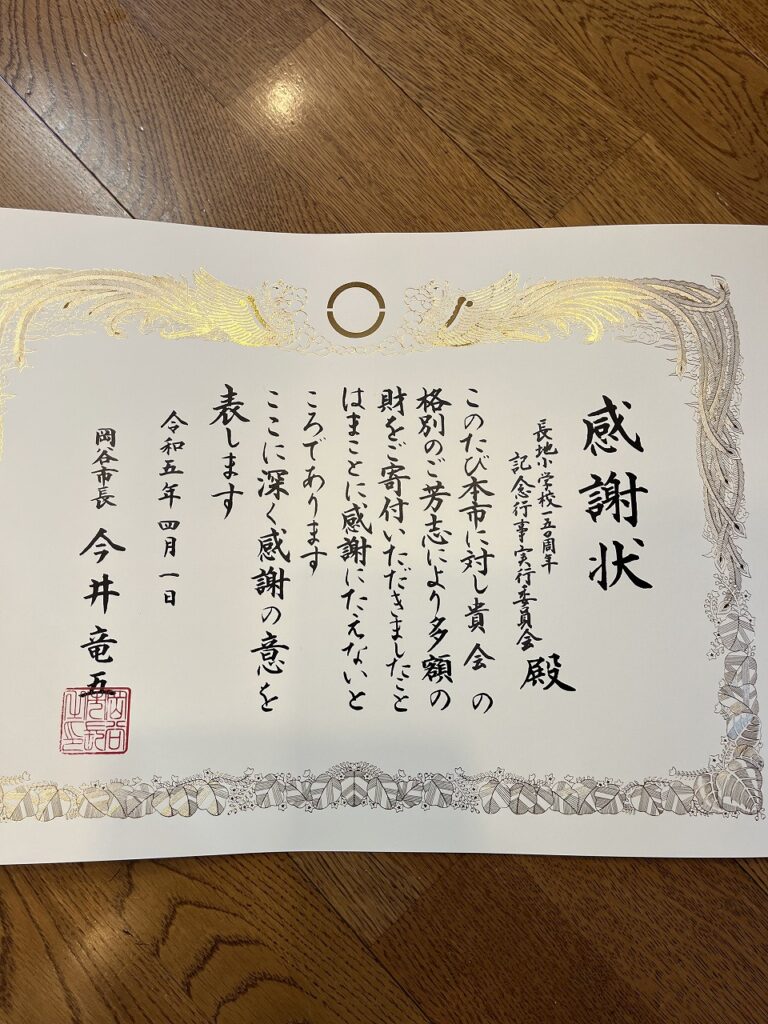 感謝状
長地小学校一五〇周年
記念行事実行委員会 殿
このたび本市に対し貴会の
格別のご芳志により多額の
財をご寄付いただきましたこと
はまことに感謝にたえないと
ころであります
ここに深く感謝の意を
表します
令和五年四月一日
岡谷市長 今井竜五
岡谷
市長
之印